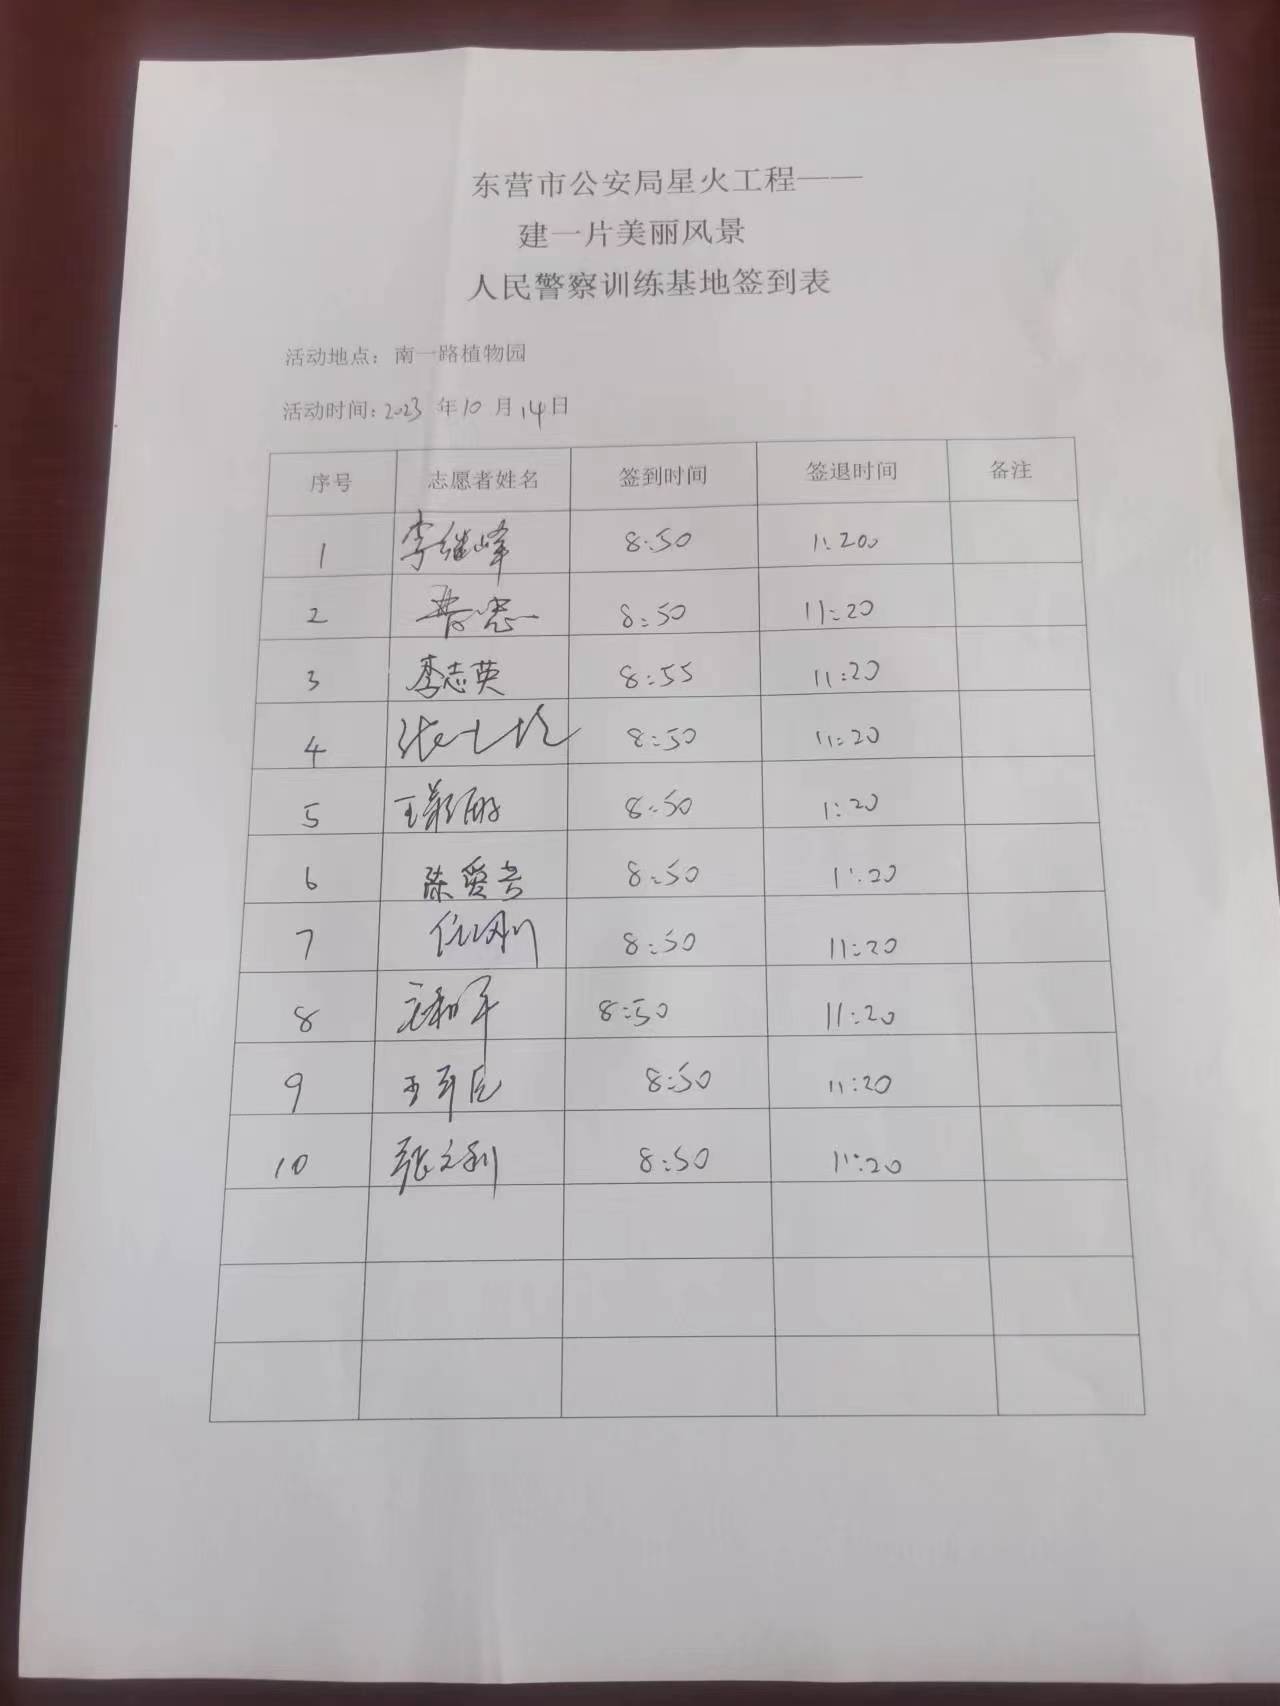 东营市公安局星火工程——
建一片美丽风景
人民警察训练基地签到表
活动地点：南一路植物园
活动时间：2023 年 10 月 14 日
序号 志愿者姓名 签到时间 签退时间 备注
1 李继峰 8:50 1:200
2 8:50 11:20
3 李志英 8:55 11:20
4 8:50 11:20
5 8:50 1:20
6 陈爱芳 8:50 11:20
7 任刚 8:50 11:20
8 8:50 11:20
9 8:50 11:20
10 张文利 8:50 11:20